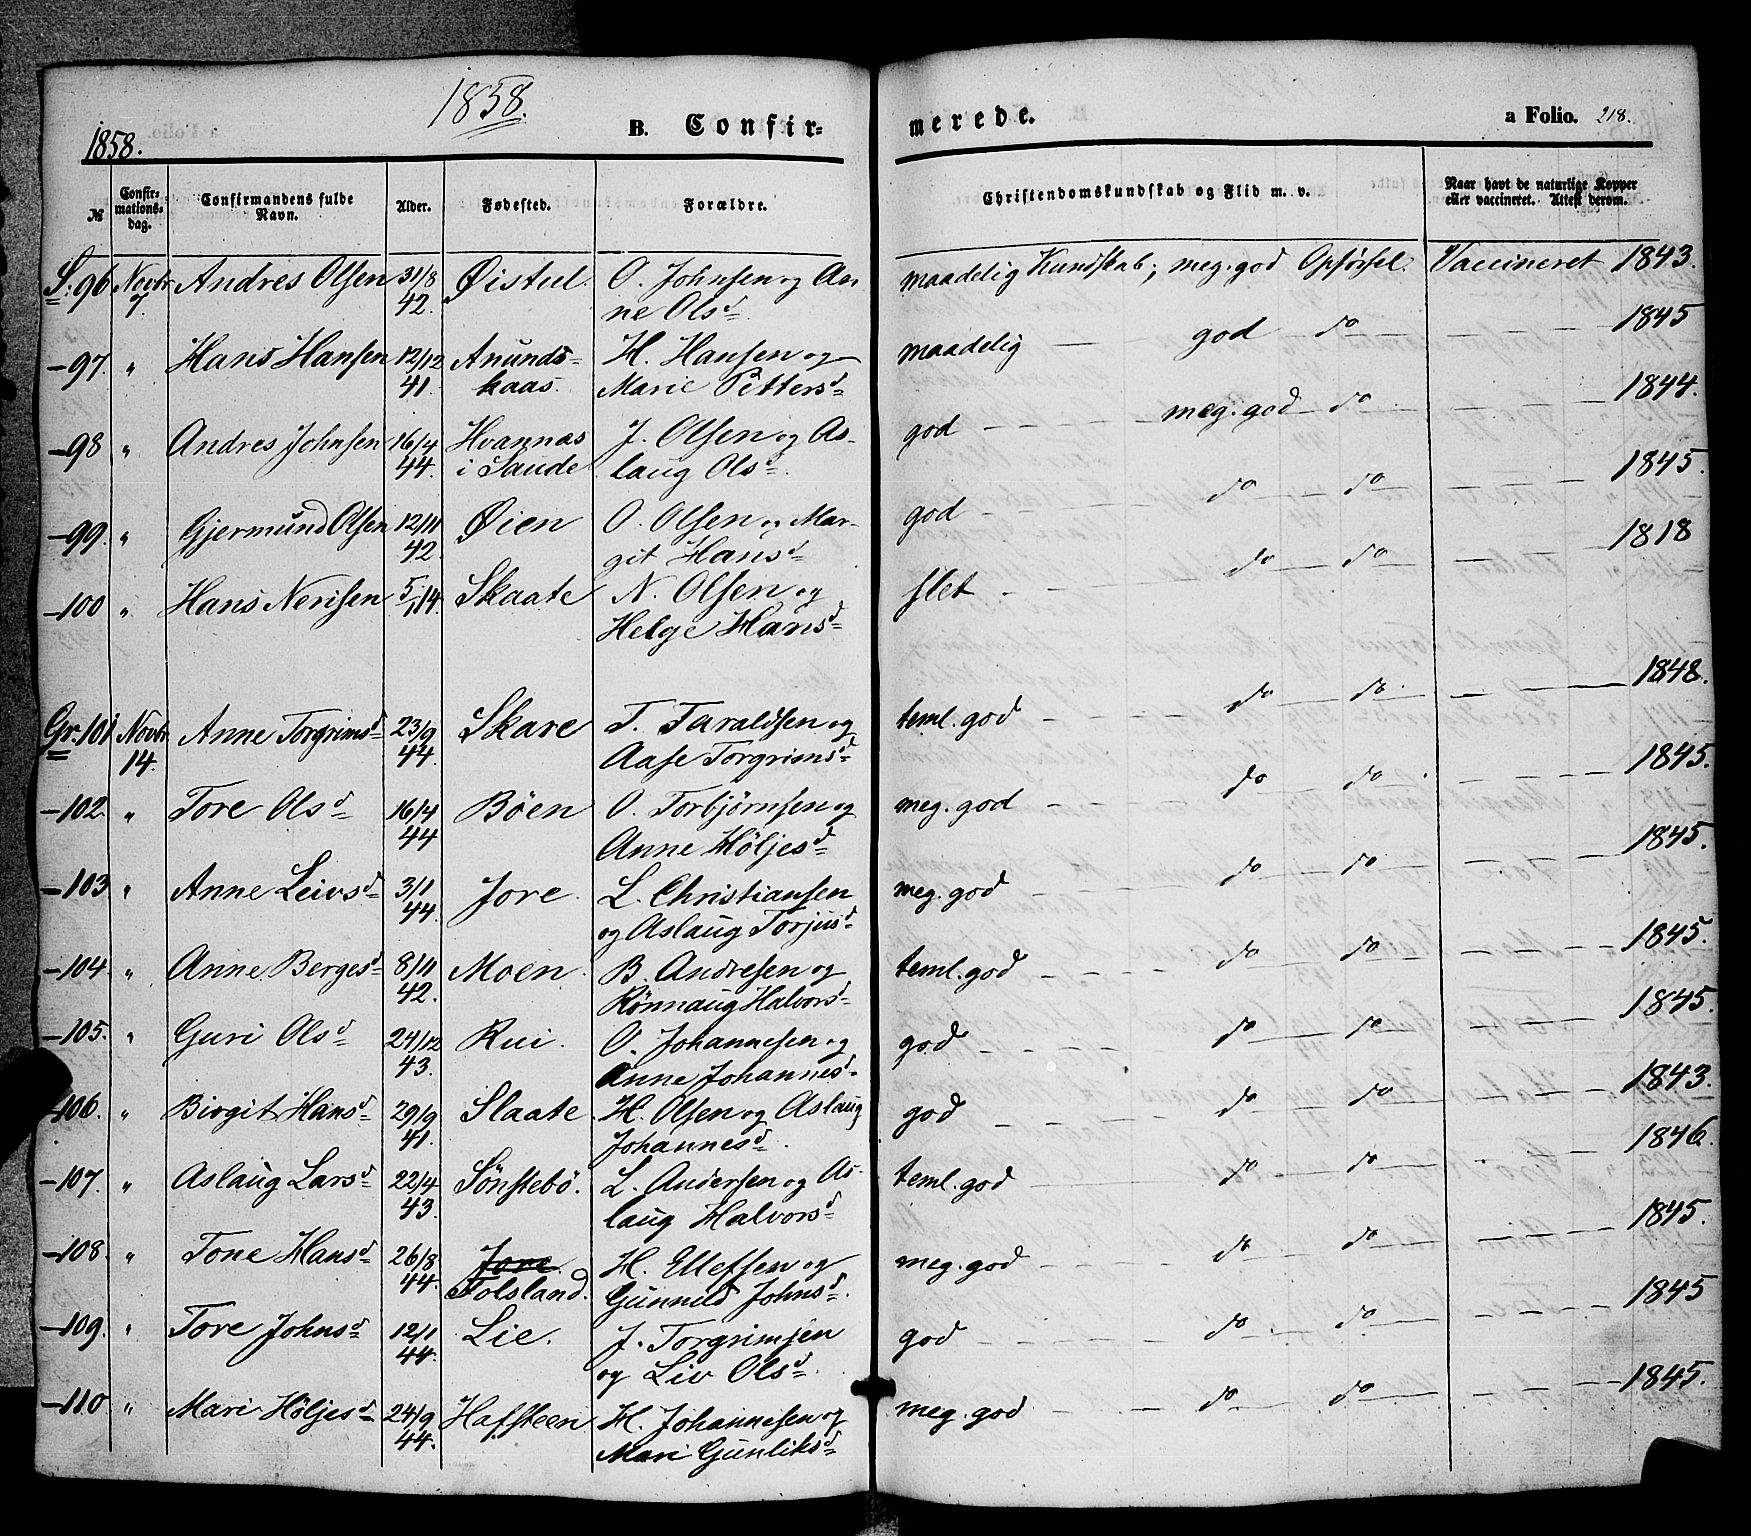 1858.
1858. B. Confir= merede. a Folio. 218.
№ Confir=mations=dag. Confirmandens fulde Navn. Alder. Fødested. Forældre. Christendomskundskab og Flid m. v. Naar havt de naturlige Kopper eller vaccineret. Attest derom.
S. 96 Novbr Andres Olsen 31/8 Øistul. O. Johnsen og An maadelig Kundskab; meg. god Opførsel. Vaccineret 1843.
7. 42. ne Olsd
-97. " Hans Hansen 12/12 Anunds- H. Hansen og maadelig — god — do — — — 1845
41. kaas. Marie Pettersd
-98 " Andres Johnsen 16/4 Hvannas J. Olsen og As- god — — — meg. god — do — — — 1844.
44. i Saude laug Olsd.
-99. " Gjermund Olsen 12/11 Øien O. Olsen og Mar- god — — — do — do — — — 1845.
42. git Hansd
-100 " Hans Nerisen 5/1 14. Skaate N. Olsen og slet — — — do — do — — — 1818
Helge Hansd
Gr. 101 Novbr Anne Torgrimsd 23/9 Skare T. Taraldsen og teml. god — — — do — do — — — 1848.
14. 44. Aase Torgrimsd
-102. " Tore Olsd 16/4 Böen O. Torbjørnsen og meg. god — — — do — do — — — 1845.
44 Anne Höljesd
-103 " Anne Leivsd 3/1 Jore. L. Christiansen meg. god — — — do — do — — — 1845.
44. og Aslaug Torjusd
-104. " Anne Bergesd 8/11 Moen. B. Andresen og teml. god — — — do — do — — — 1845.
42. Rönnaug Halvorsd
-105. " Guri Olsd 24/12 Rui. O. Johannesen og god — — — do — do — — — 1845.
43. Anne Johannesd
-106. " Birgit Hansd 29/9 Slaate H. Olsen og Aslaug god — — — do — do — — — 1843.
41. Johannesd.
-107. " Aslaug Larsd 22/4 Sönstebö. L. Andersen og As- teml. god — — — do — do — — — 1846.
43. laug Halvorsd
-108. " Tone Hansd 26/8 Jore H. Ellefsen og meg. god — — — do — do — — — 1845.
44. Folsland. Gunnild Johnsd.
-109. " Tore Johnsd 12/1 Lie. J. Torgrimsen god — — — do — do — — — 1845
44. og Liv Olsd.
-110 " Mari Höljesd 24/9 Hafsteen H. Johannesen og meg. god — — — do — do — — — 1845.
44. Mari Gunliksd